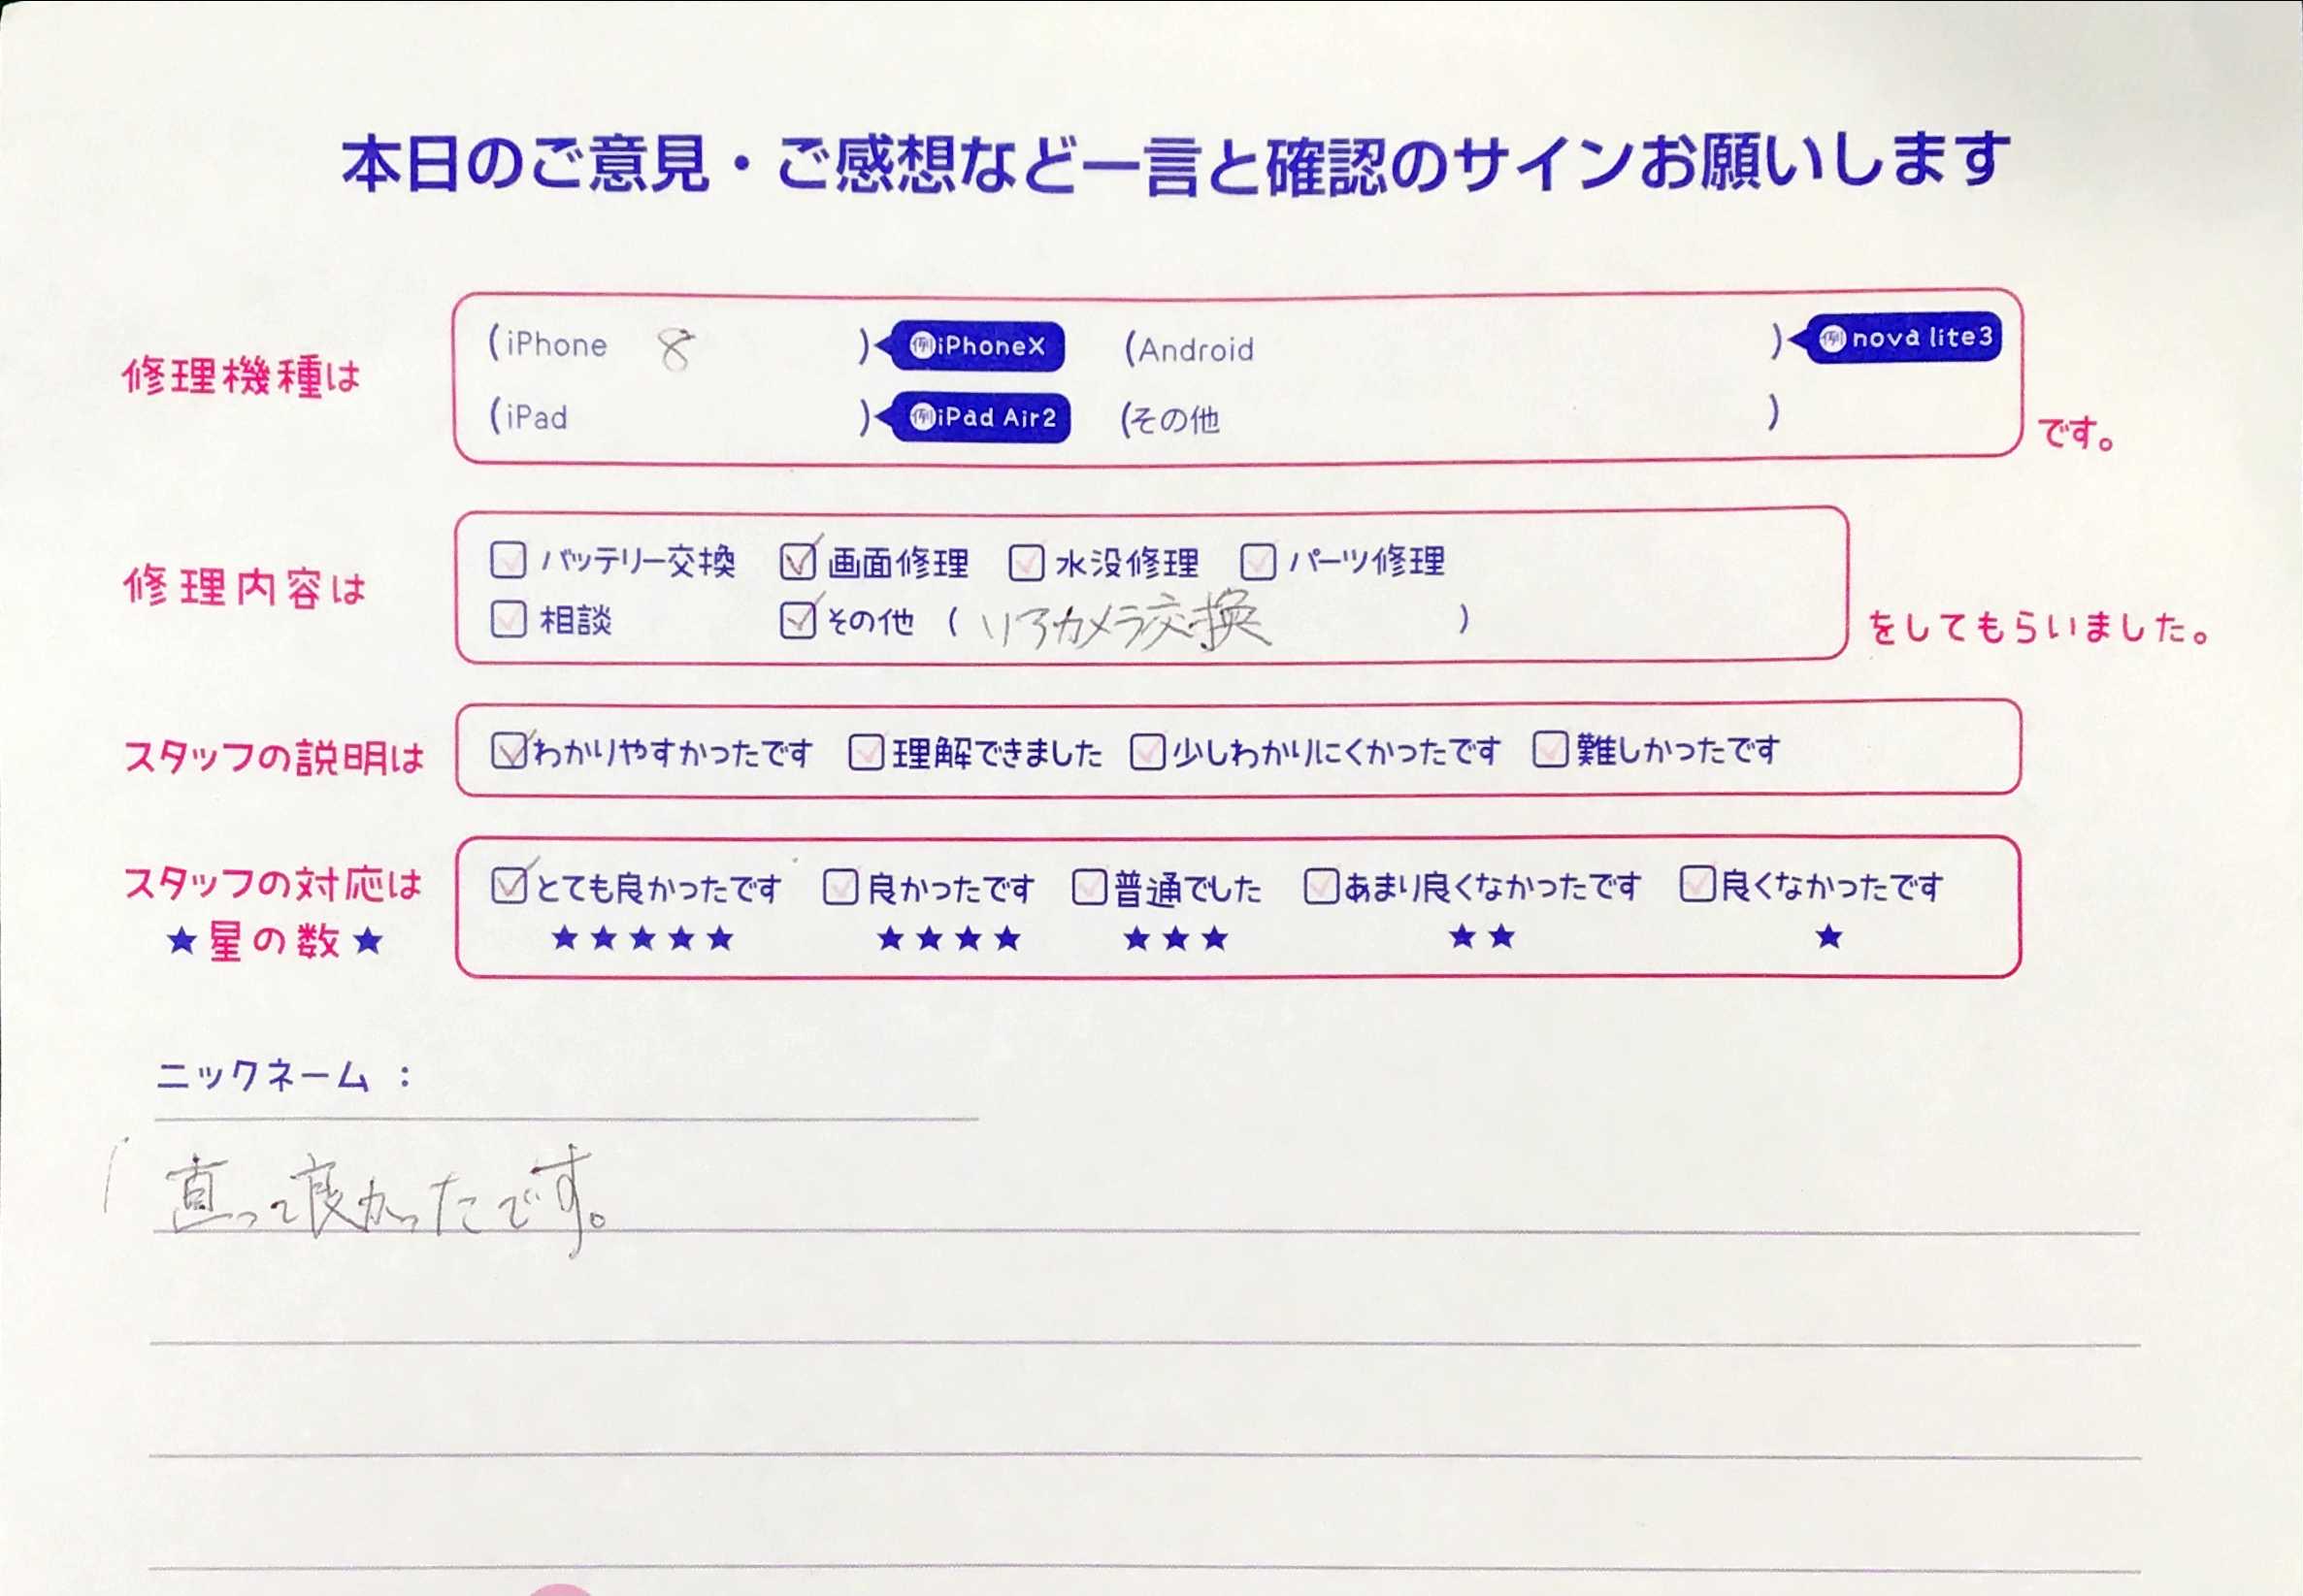 本日のご意見・ご感想など一言と確認のサインお願いします
修理機種は
(iPhone 8 ) 例iPhoneX (Android ) 例nova lite3
(iPad ) 例iPad Air2 (その他 ) です。
修理内容は
バッテリー交換 画面修理 水没修理 パーツ修理
相談 その他 ( リアカメラ交換 ) をしてもらいました。
スタッフの説明は わかりやすかったです 理解できました 少しわかりにくかったです 難しかったです
スタッフの対応は とても良かったです 良かったです 普通でした あまり良くなかったです 良くなかったです
★星の数★ ★★★★★ ★★★★ ★★★ ★★ ★
ニックネーム：
直って良かったです。